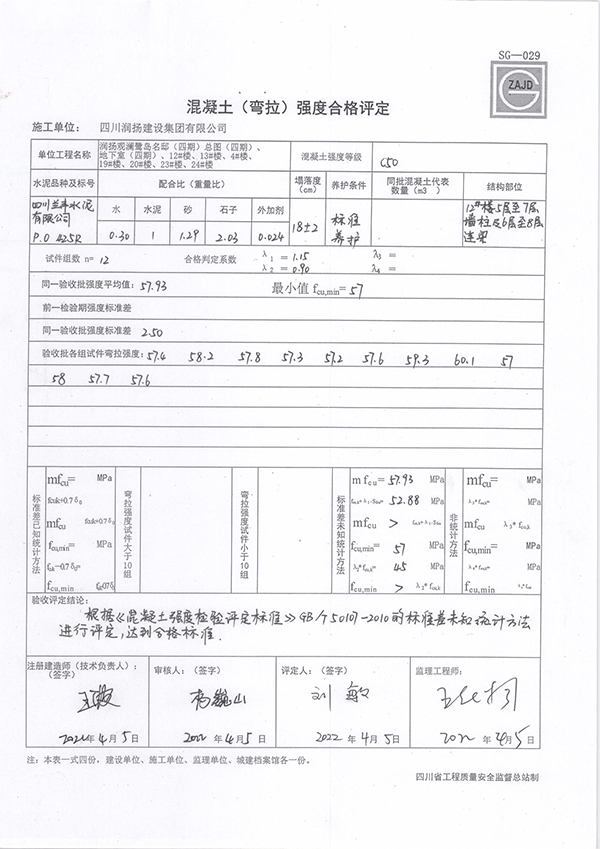 SG—029
ZAJD
混凝土（弯拉）强度合格评定
施工单位： 四川润扬建设集团有限公司
单位工程名称
润扬观澜鹭岛名邸（四期）总图（四期）、
地下室（四期）、12#楼、13#楼、4#楼、
19#楼、20#楼、23#楼、24#楼
混凝土强度等级 C50
水泥品种及标号 配合比（重量比） 塌落度（cm） 养护条件 同批混凝土代表数量（m3 ） 结构部位
水 水泥 砂 石子 外加剂
有限公司
P.O 42.5R 0.30 1 1.29 2.03 0.024 18±2 标准养护
12#楼5层至7层
墙柱及6层至8层
连梁
试件组数 n= 12 合格判定系数 λ1 = 1.15 λ3 =
λ2 = 0.90 λ4 =
同一验收批强度平均值: 57.93 最小值 fcu,min= 57
前一检验期强度标准差
同一验收批强度标准差 2.50
验收批各组试件弯拉强度: 57.4 58.2 57.8 57.3 57.2 57.6 59.3 60.1 57
58 57.7 57.6
标准差已知统计方法
mfcu= MPa
fcuk+0.7δ0
mfcu fcuk+0.7δ0
fcu,min= MPa
fcu,min
弯拉强度试件大于10组
弯拉强度试件小于10组
标准差未知统计方法
mfcu= 57.93 MPa
52.88 MPa
mfcu >
fcu,min= 57 MPa
45 MPa
fcu,min >
非统计方法
mfcu= MPa
MPa
mfcu
fcu,min= MPa
MPa
fcu,min
验收评定结论:
根据《混凝土强度检验评定标准》GB/T 50107-2010的标准差未知统计方法
进行评定,达到合格标准.
注册建造师（技术负责人）: （签字）
审核人: （签字）
评定人: （签字）
监理工程师:
杨巍山
刘敏
2022年4月5日
2022 年4月5日
2022 年4月5日
2022 年4月5日
注: 本表一式四份，建设单位、施工单位、监理单位、城建档案馆各一份。
四川省工程质量安全监督总站制